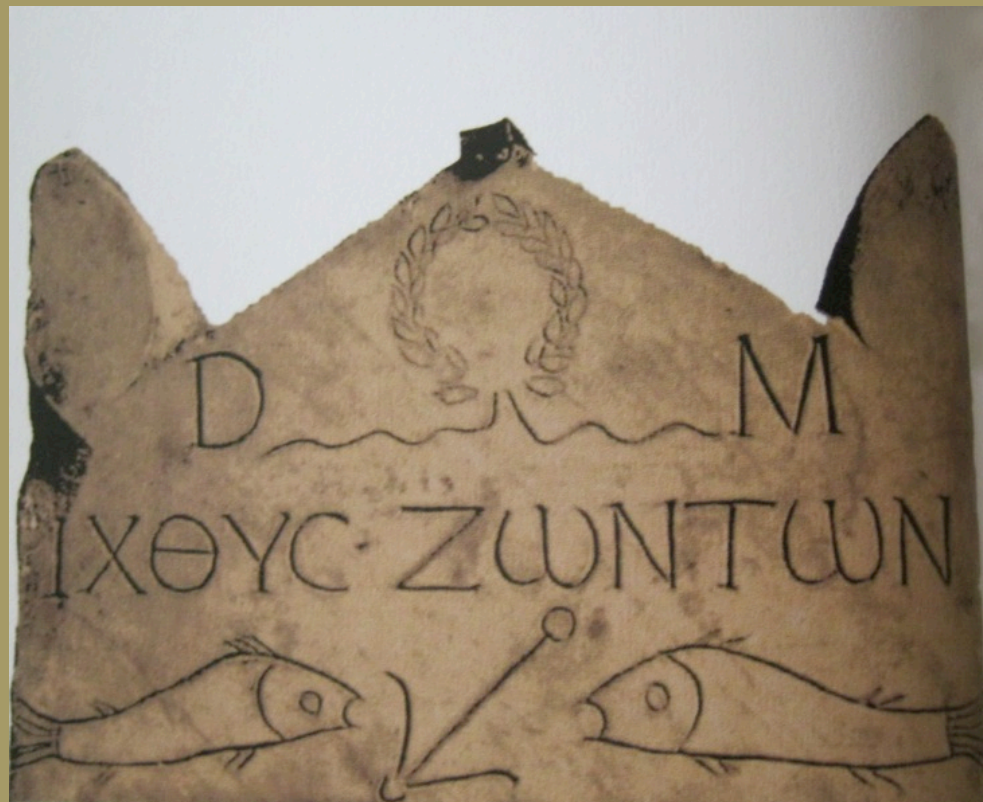 D M
ΙΧΘΥC ΖωΝΤωΝ